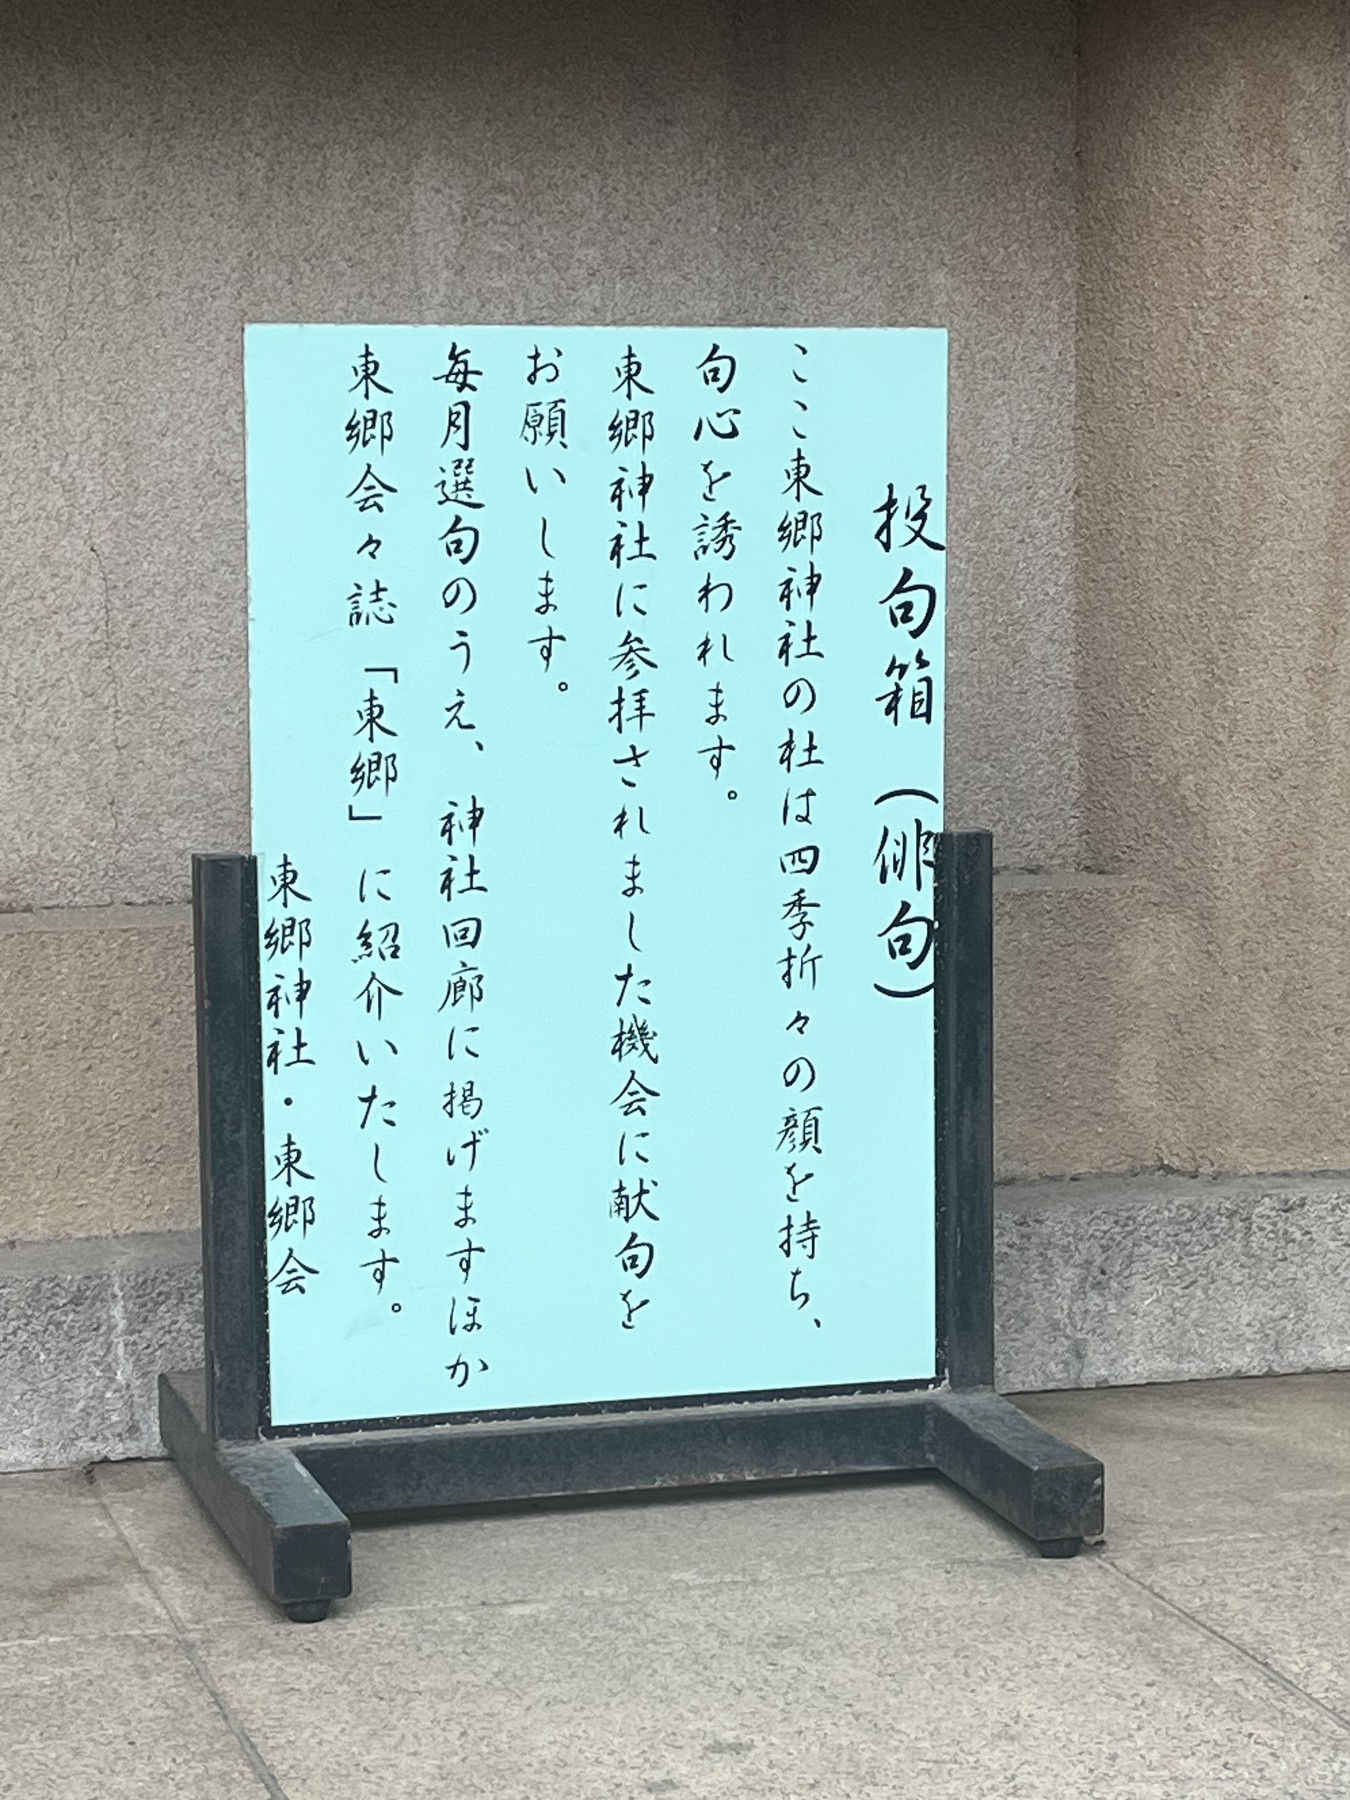 投句箱（俳句）
ここ東郷神社の杜は四季折々の顔を持ち、
句心を誘われます。
東郷神社に参拝されました機会に献句を
お願いします。
毎月選句のうえ、神社回廊に掲げますほか
東郷会々誌「東郷」に紹介いたします。
東郷神社・東郷会